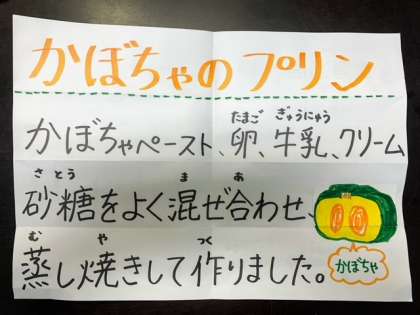 かぼちゃのプリン
かぼちゃペースト、卵、牛乳、クリーム
たまご ぎゅうにゅう
砂糖をよく混ぜ合わせ、
さとう ま あ
蒸し焼きして作りました。
む や つく
かぼちゃ